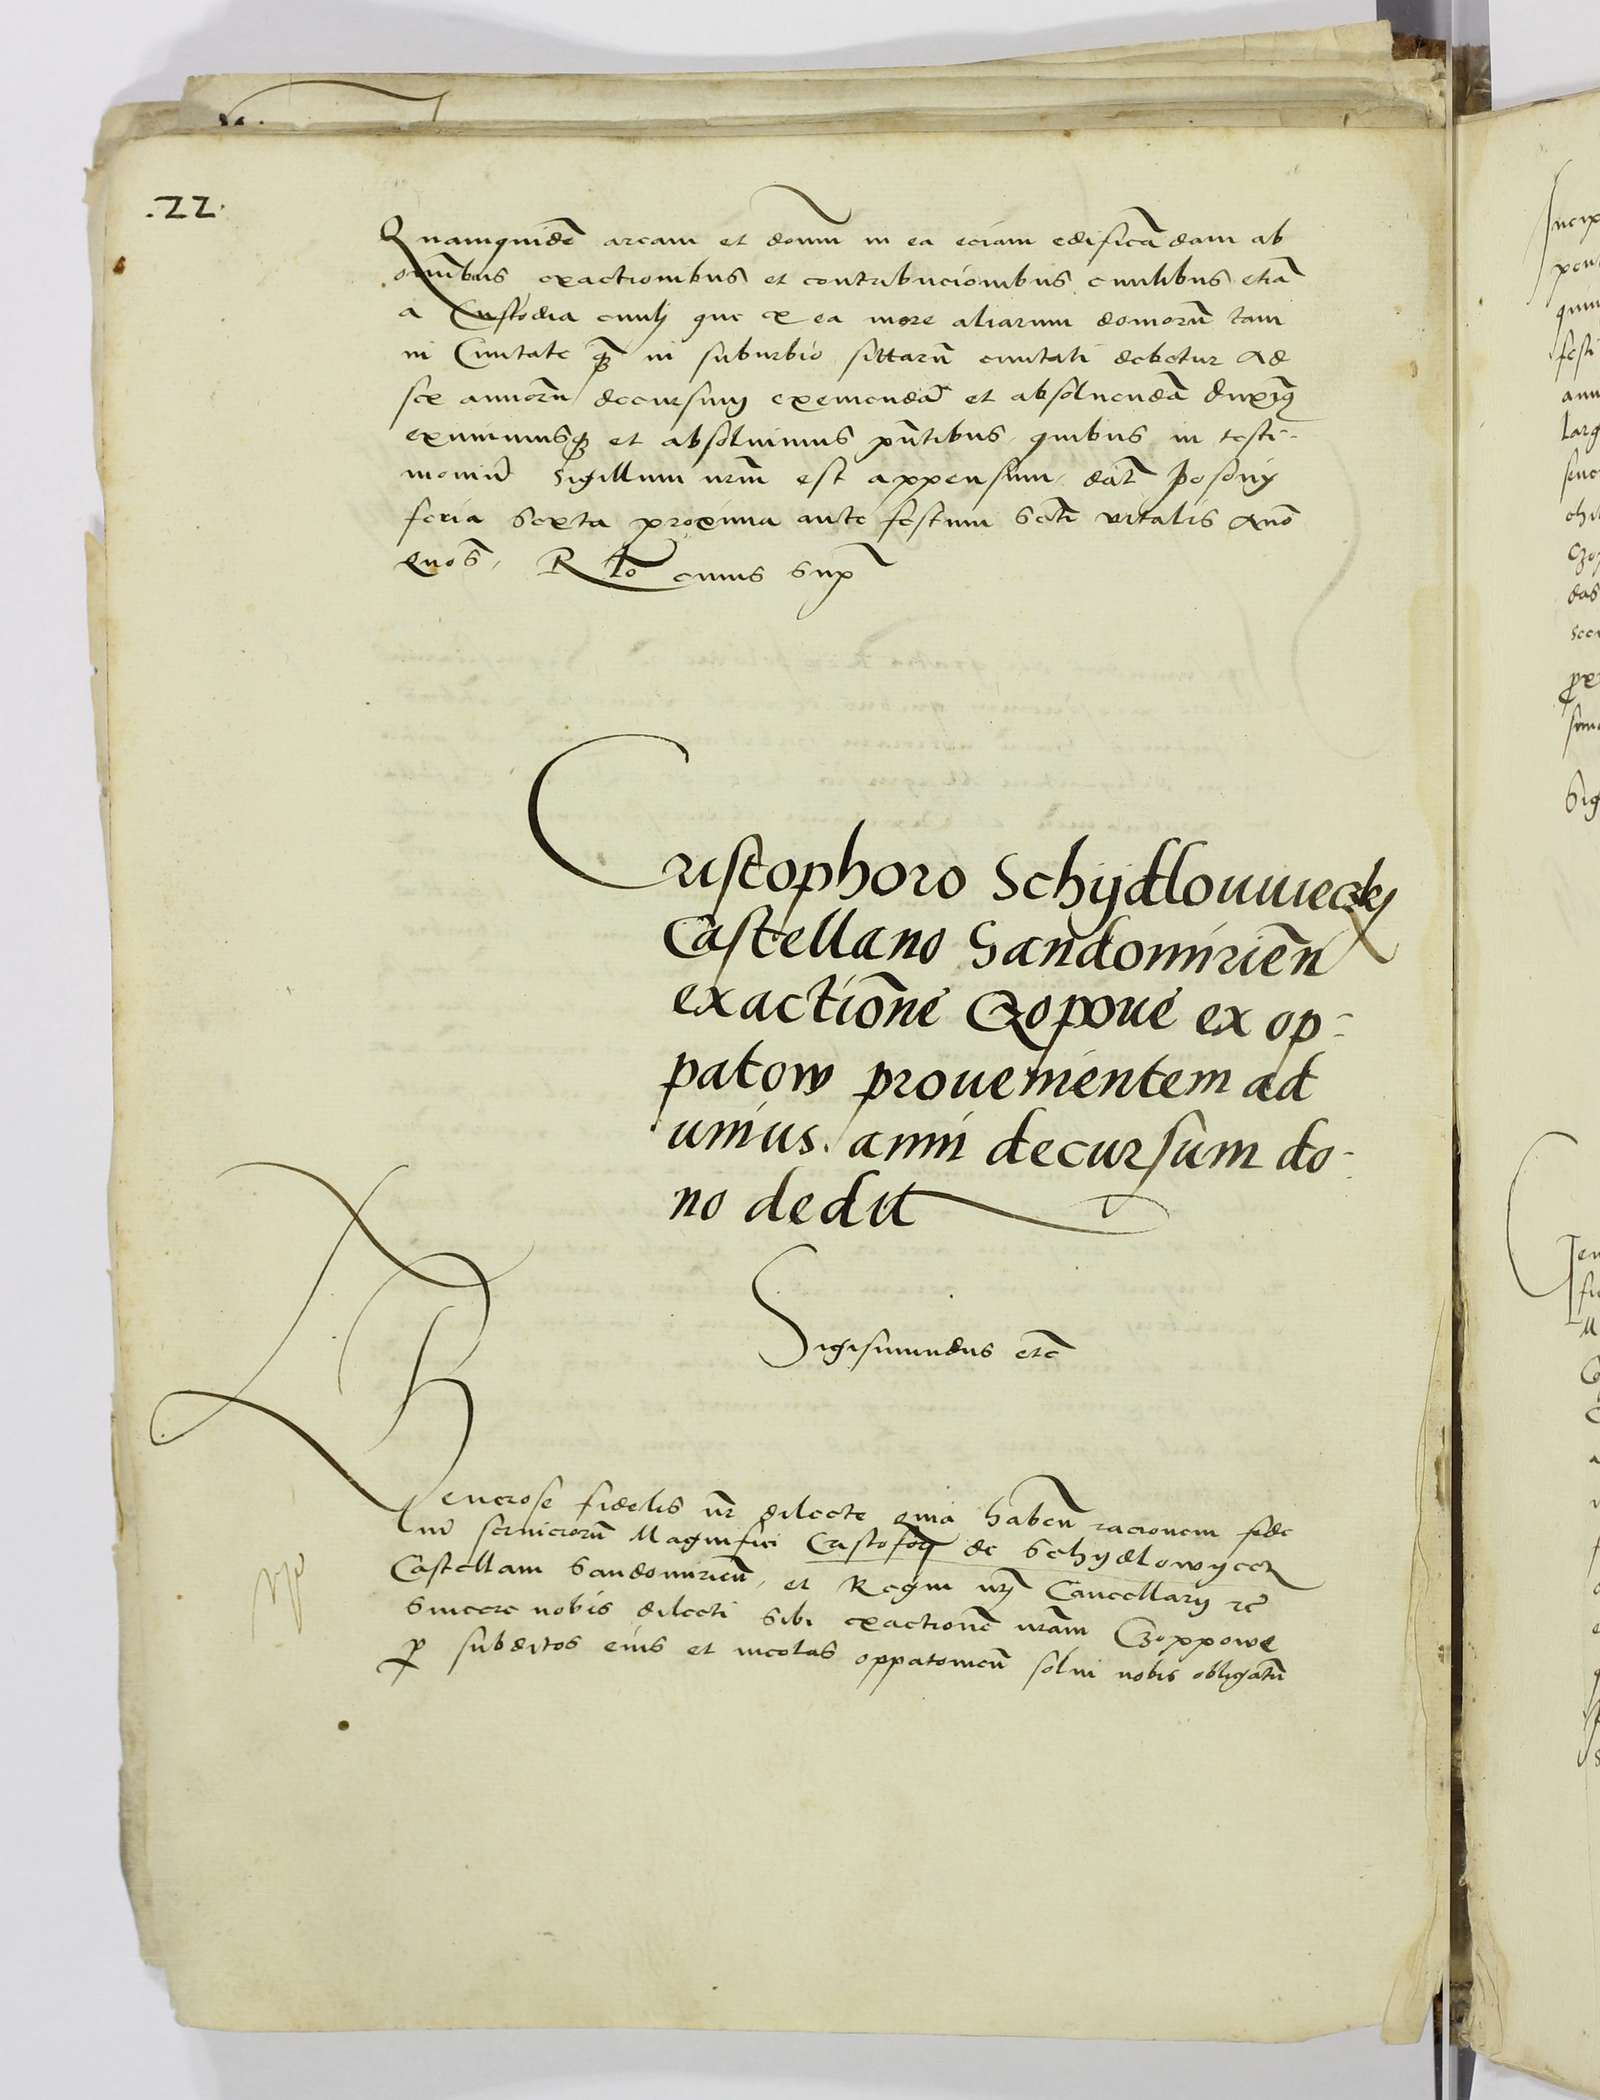 .22.
Quamquidē aream et domū in ea eciam edificādam ab
omībus exactionibus et contribucionibus ciuilibus etiā
a Custodia ciuilj que ex ea more aliarum domorū tam
in Ciuitate q̄ in suburbio sittarū ciuitati debetur ad
sex annorū decursum exemendā et absoluendā duximus
exemimusq et absoluimus pn̄tibus, quibus in testi-
moniū Sigillum nrm̄ est appensum, dat̄ Posonij
feria Sexta proxima ante festum Scti vitalis Anō
quos̄, R̄lo cuius Sup̄
Cristophoro Schijdlouuieczkj
Castellano Sandomirien̄
exactionē Czopoue ex op-
patow prouenientem ad
unius anni decursum do-
no dedit
Sigismundus etc̄
Generose fidelis nr̄ dilecte quia haben̄ racionem fide
liū seruiciorū Magnifici Cristofori de Schydlowyecz
Castellani Sandomirien̄, et Regni nrj̄ Cancellarij rc̄
Sincere nobis dilecti Sibi exactionē nrām Czoppowe
p subditos eius et incolas oppatouien̄ solui nobis obligatū